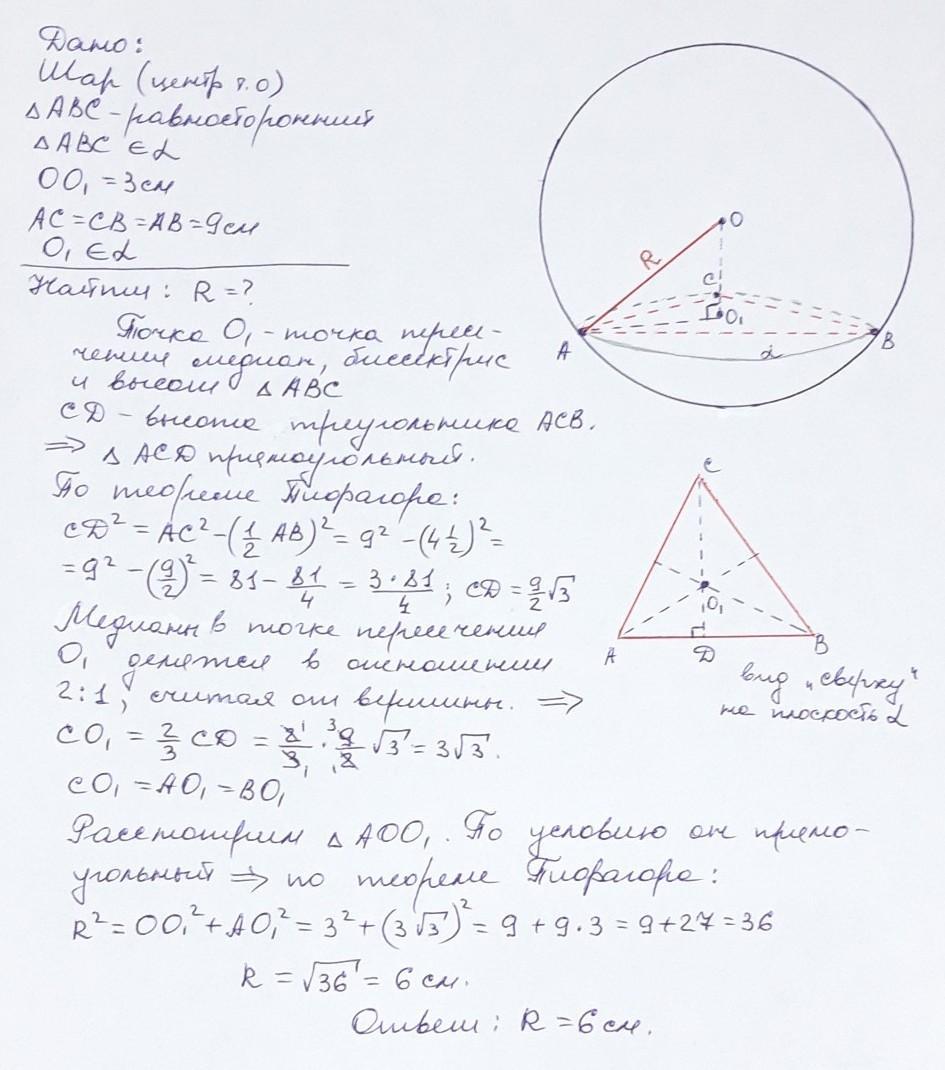 Дано:
Шар (центр т.О)
△ABC - равносторонний
△ABC ∈ α
OO₁ = 3 см
AC = CB = AB = 9 см
O₁ ∈ α
Найти: R = ?
Точка O₁ - точка пересе-
чения медиан, биссектрис
и высот △ABC
CD - высота треугольника ACB.
⇒ △ACD прямоугольный.
По теореме Пифагора:
CD² = AC² - (1/2 AB)² = 9² - (4 1/2)² =
= 9² - (9/2)² = 81 - 81/4 = 3·81/4 ; CD = 9/2 √3
Медианы в точке пересечения
O₁ делятся в отношении
2:1, считая от вершины. ⇒
CO₁ = 2/3 CD = 2¹/3₁ · ³9/₁2 √3 = 3√3.
CO₁ = AO₁ = BO₁
Рассмотрим △AOO₁. По условию он прямо-
угольный ⇒ по теореме Пифагора:
R² = OO₁² + AO₁² = 3² + (3√3)² = 9 + 9·3 = 9 + 27 = 36
R = √36 = 6 см.
Ответ: R = 6 см.
O
R
C
O₁
A
B
α
C
O₁
A
D
B
вид „сверху“
на плоскость α